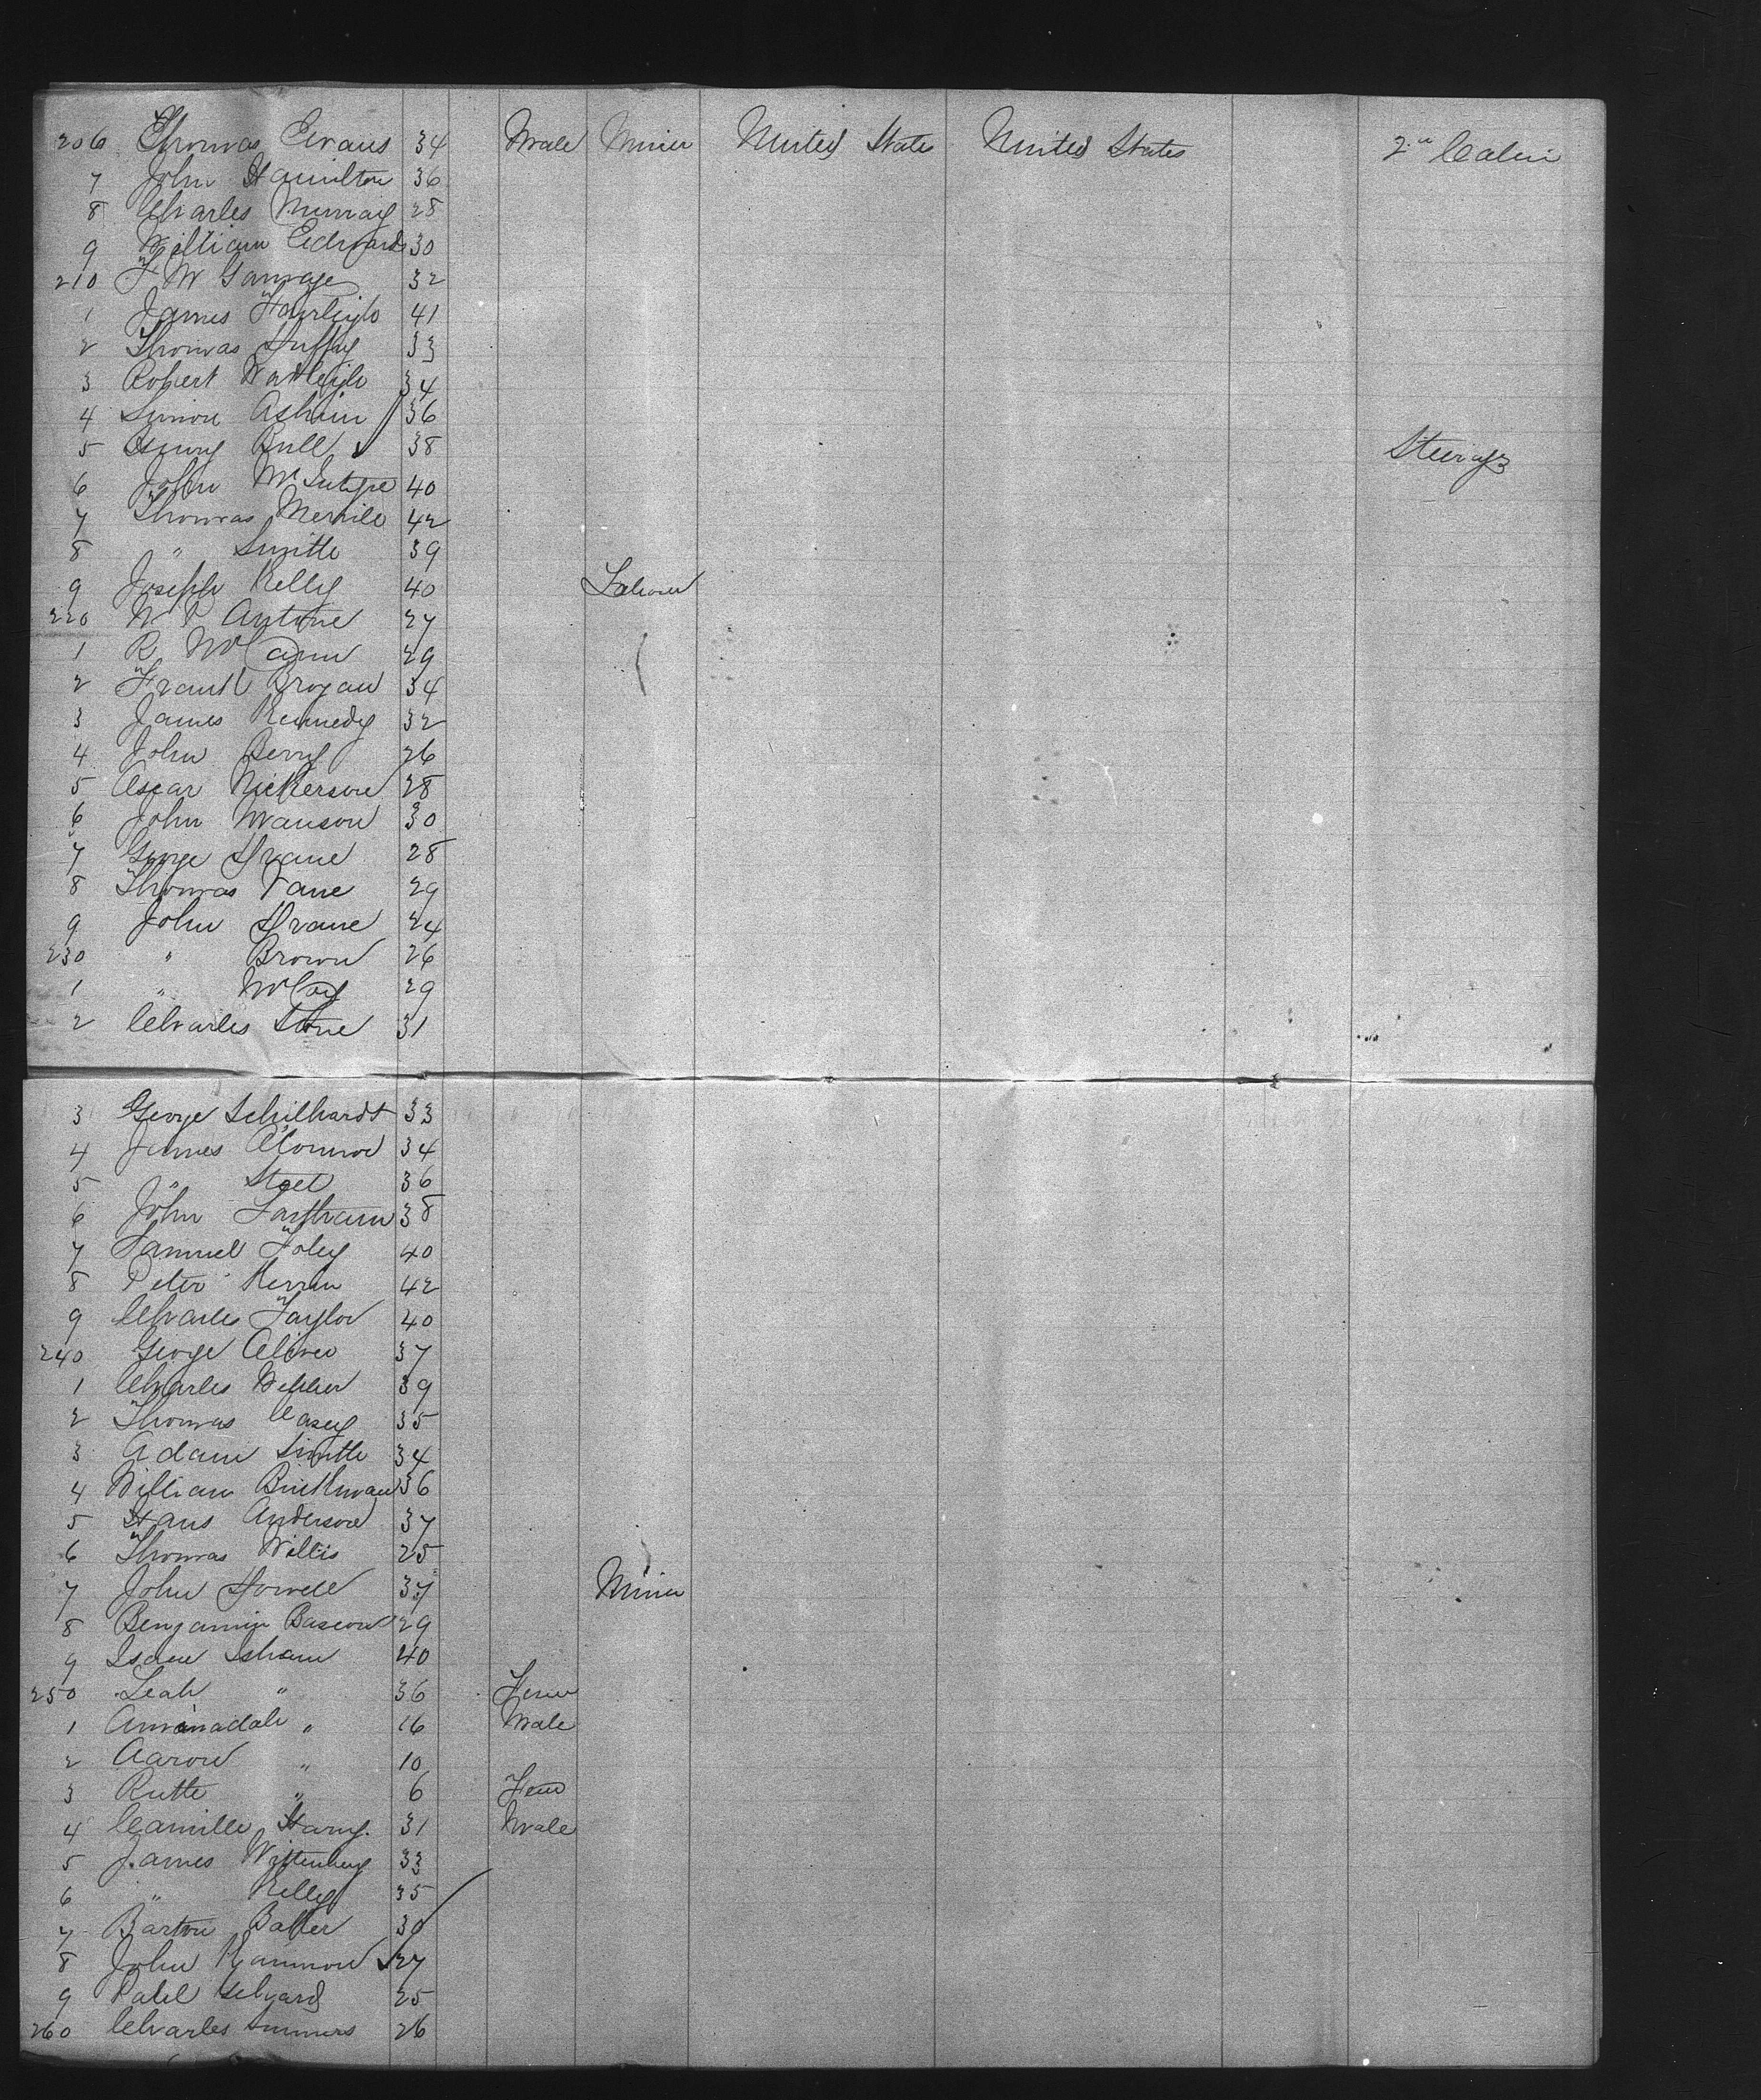 206 Thomas Evans 34 Male Miner United States United States 2nd Cabin
7 John Hamilton 36
8 Charles Murray 28
9 William Edwards 30
210 F W Gamage 32
1 James 41
2 Thomas Duffy 33
3 Robert 34
4 Simon 36
5 Henry Bull 38 Steerage
6 John McIntyre 40
7 Thomas Merrile 42
8 " Smith 39
9 Joseph Kelly 40 Laborer
220 W P Antone 27
1 R McCann 29
2 Frank Brogan 34
3 James Kennedy 32
4 John Berry 26
5 Oscar Nickerson 28
6 John Manson 30
7 George Drane 28
8 Thomas Vane 29
9 John Drane 24
230 " Brown 26
1 " McCoy 29
2 Charles Stone 31
3 George Schilhardt 33
4 James OConnor 34
5 " Steel 36
6 John 38
7 Samuel Foley 40
8 Peter Kerrin 42
9 Charles Taylor 40
240 George Oliver 37
1 Charles 39
2 Thomas Casey 35
3 Adam Smith 34
4 William 36
5 Hans Anderson 37
6 Thomas Willis 25
7 John Howell 37 Miner
8 Benjamin Bascom 29
9 Isham 40
250 Leah " 36 Fem
1 Aminadab " 16 Male
2 Aaron " 10
3 Ruth " 6 Fem
4 Camille 31 Male
5 James Wittenberg 33
6 " Kelly 35
7 Barton Baker 30
8 John 27
9 25
260 Charles Summers 26